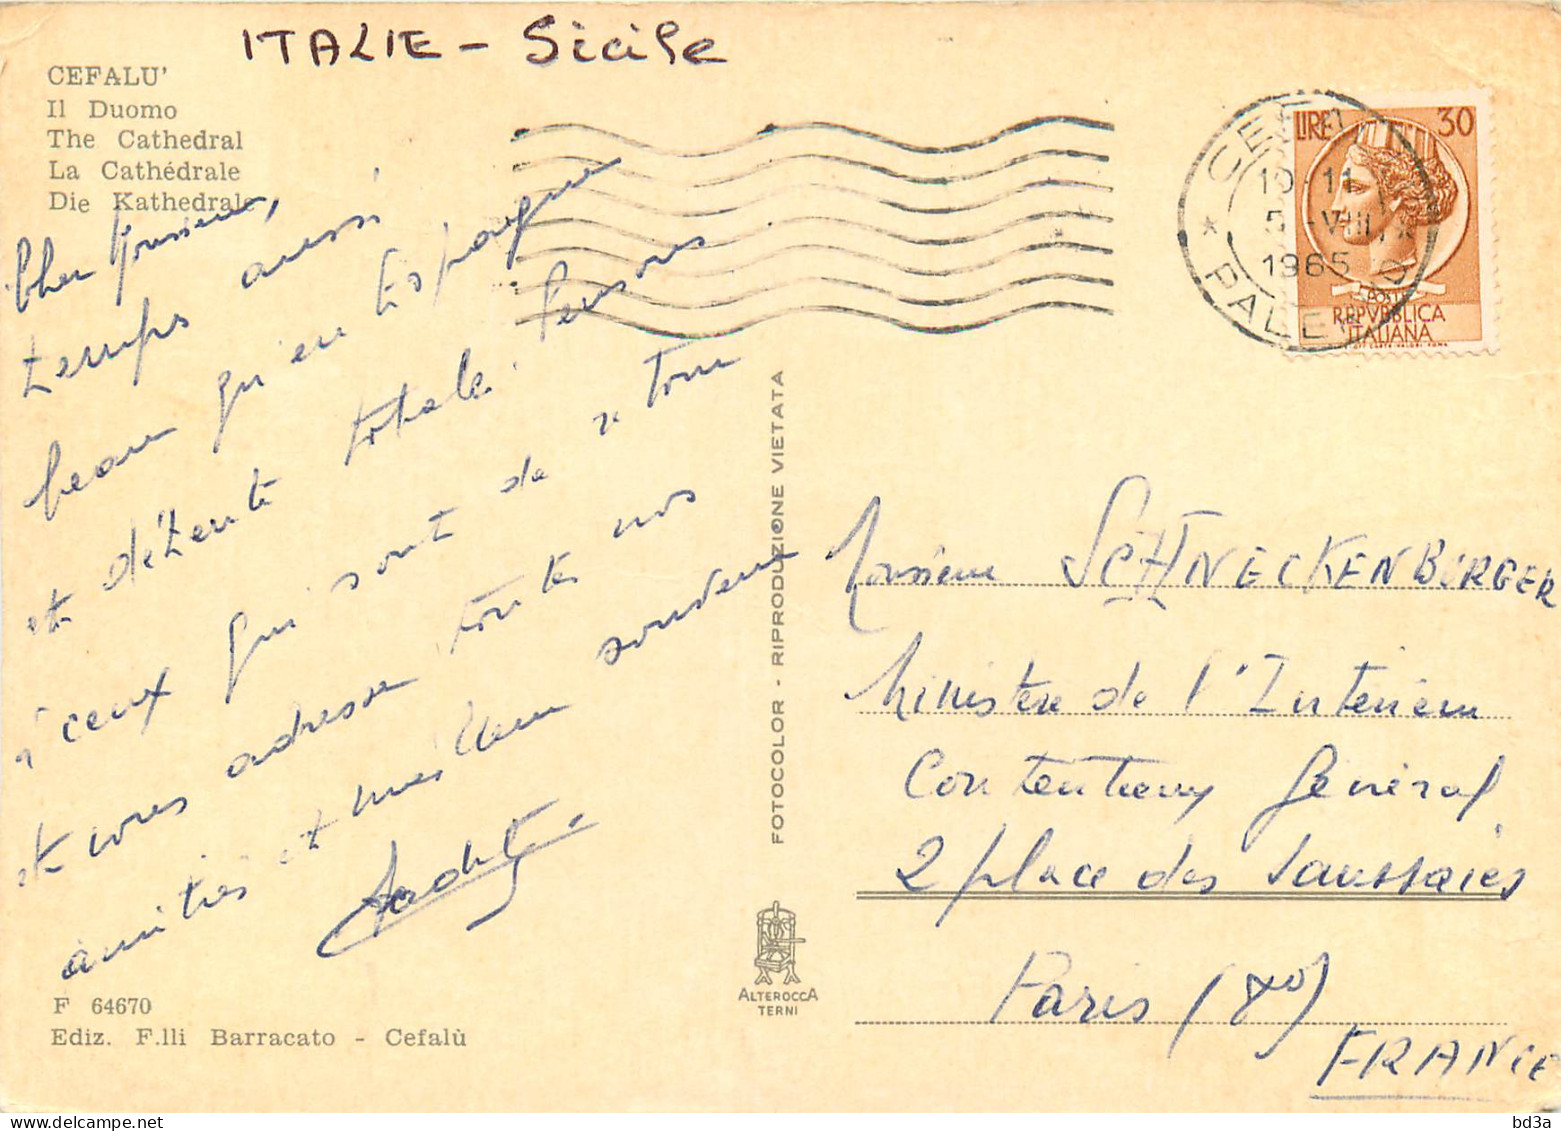 ITALIE - Sicile
CEFALU'
Il Duomo
The Cathedral
La Cathédrale
Die Kathedrale
Cher Monsieur,
temps aussi
beau qu'en Espagne
et détente totale. Pensons
à ceux qui sont de retour
et vous adresse toutes nos
amitiés et meilleur souvenir
F 64670
Ediz. F.lli Barracato - Cefalù
FOTOCOLOR - RIPRODUZIONE VIETATA
ALTEROCCA
TERNI
10-11
5-VIII
1965
LIRE 30
POSTE
REPVBBLICA
ITALIANA
Monsieur SCHNECKENBURGER
Ministère de l'Intérieur
Contentieux Général
2 place des Saussaies
Paris (8°)
FRANCE
bd3a